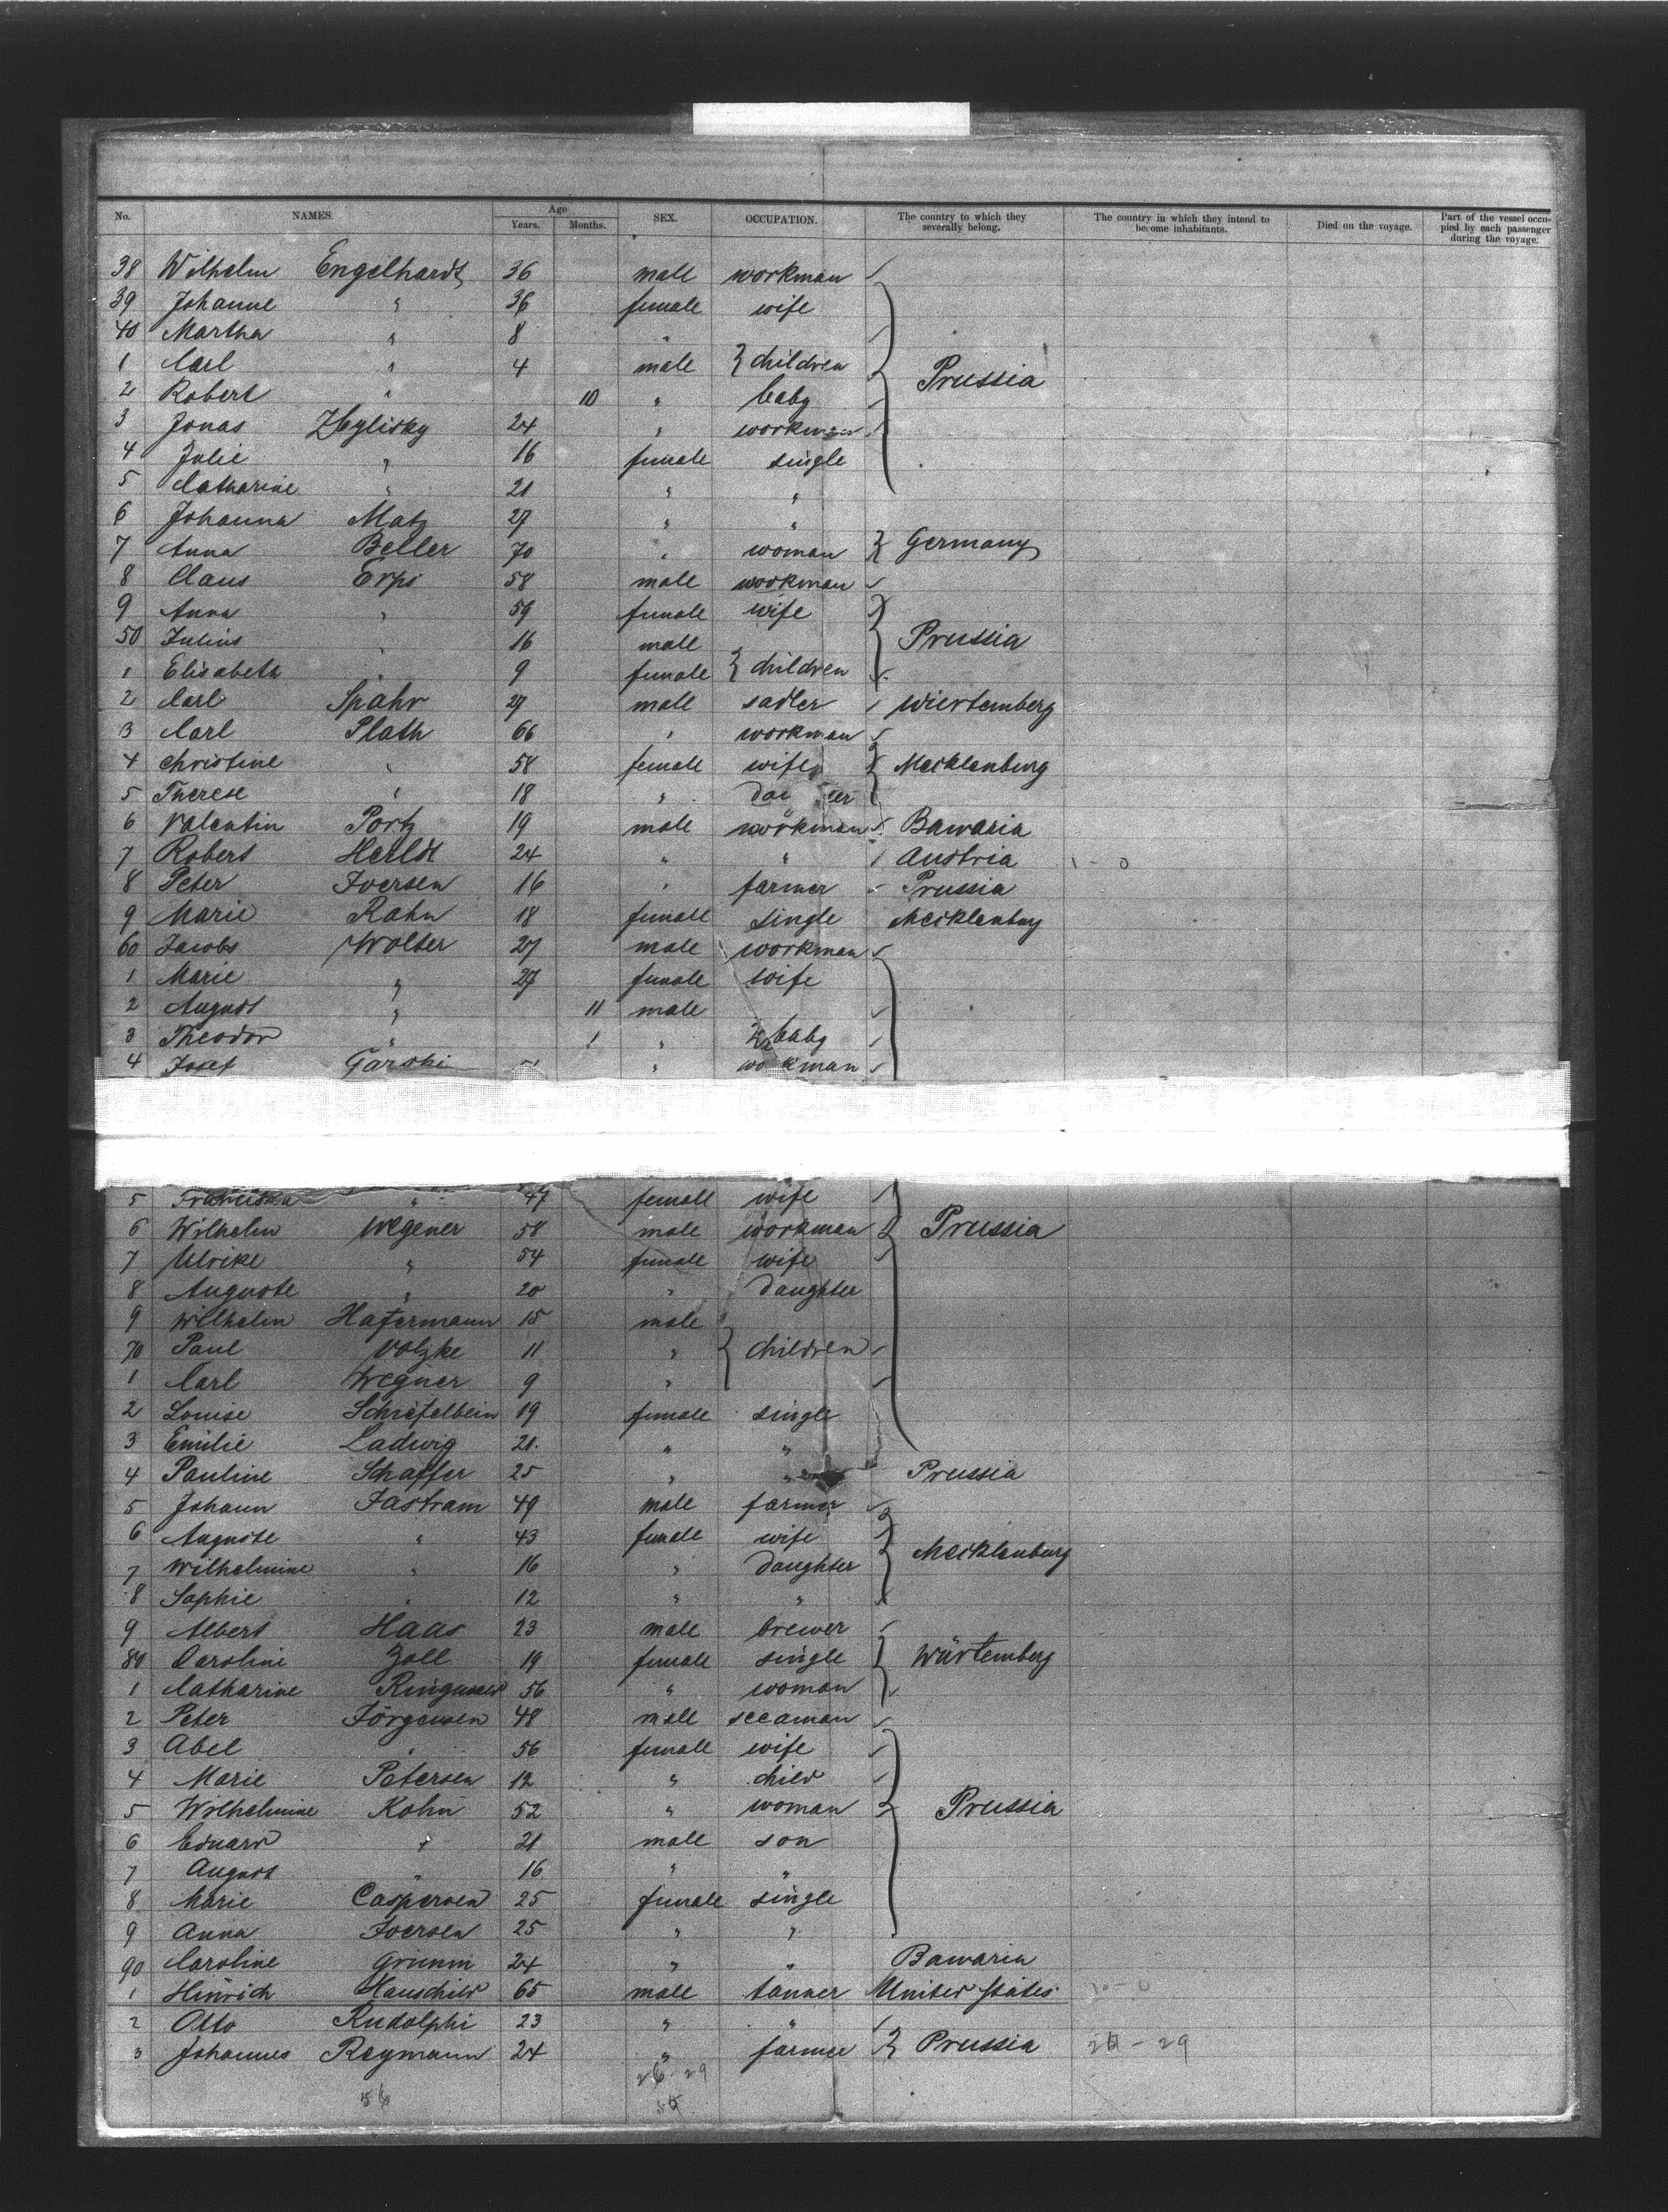 No. NAMES. Age Years. Months. SEX. OCCUPATION. The country to which they severally belong. The country in which they intend to become inhabitants. Died on the voyage. Part of the vessel occupied by each passenger during the voyage.
38 Wilhelm Engelhardt 36 male workman
39 Johanne " 36 female wife
40 Martha " 8 "
1 Carl " 4 male } children Prussia
2 Robert " 10 " baby
3 Jonas 24 " workman
4 Julie " 16 female single
5 Catharine " 21 " "
6 Johanna Matz 27 " "
7 Anna Beller 70 " woman } Germany
8 Claus Erps 58 male workman
9 Anna " 59 female wife
50 Julius " 16 male Prussia
1 Elisabeth " 9 female } children
2 Carl Spahr 27 male sadler Wiertemberg
3 Carl Plath 66 " workman
4 Christine " 58 female wife Mecklenburg
5 Therese " 18 "
6 Valentin Portz 19 male workman Bawaria
7 Robert Herldt 24 " " Austria 1 - 0
8 Peter Iversen 16 " farmer Prussia
9 Marie Rahn 18 female single Mecklenburg
60 Jacobs Wolter 27 male workman
1 Marie " 27 female wife
2 August " 11 male
3 Theodor " 1 " } baby
4 Josef Garski " workman
5 Franciska " 47 female wife
6 Wilhelm Wegener 58 male workman Prussia
7 Ulrike " 54 female wife
8 Auguste " 20 " daughter
9 Wilhelm Hafermann 15 male
70 Paul Volzke 11 " } children
1 Carl Wegner 9 "
2 Louise Schiefelbein 19 female single
3 Emilie Ladwig 21. " "
4 Pauline Schaffer 25 " " Prussia
5 Johann Fastram 49 male farmer
6 Auguste " 43 female wife
7 Wilhelmine " 16 " daughter Mecklenburg
8 Sophie " 12 " "
9 Albert Haas 23 male brewer
80 Caroline Zoll 19 female single Würtemberg
1 Catharine 56 " woman
2 Peter Jörgensen 48 male seeaman
3 Abel " 56 female wife
4 Marie Petersen 12 " child
5 Wilhelmine Kohn 52 " woman Prussia
6 Eduard " 21 male son
7 August " 16 " "
8 Marie Caspersen 25 female single
9 Anna Iversen 25 " "
90 Caroline Grimm 24 " " Bawaria
1 Hinrich Hauschild 65 male tanner United States
2 Otto Rudolphi 23 " "
3 Johannes Reymann 24 " farmer } Prussia
26-29